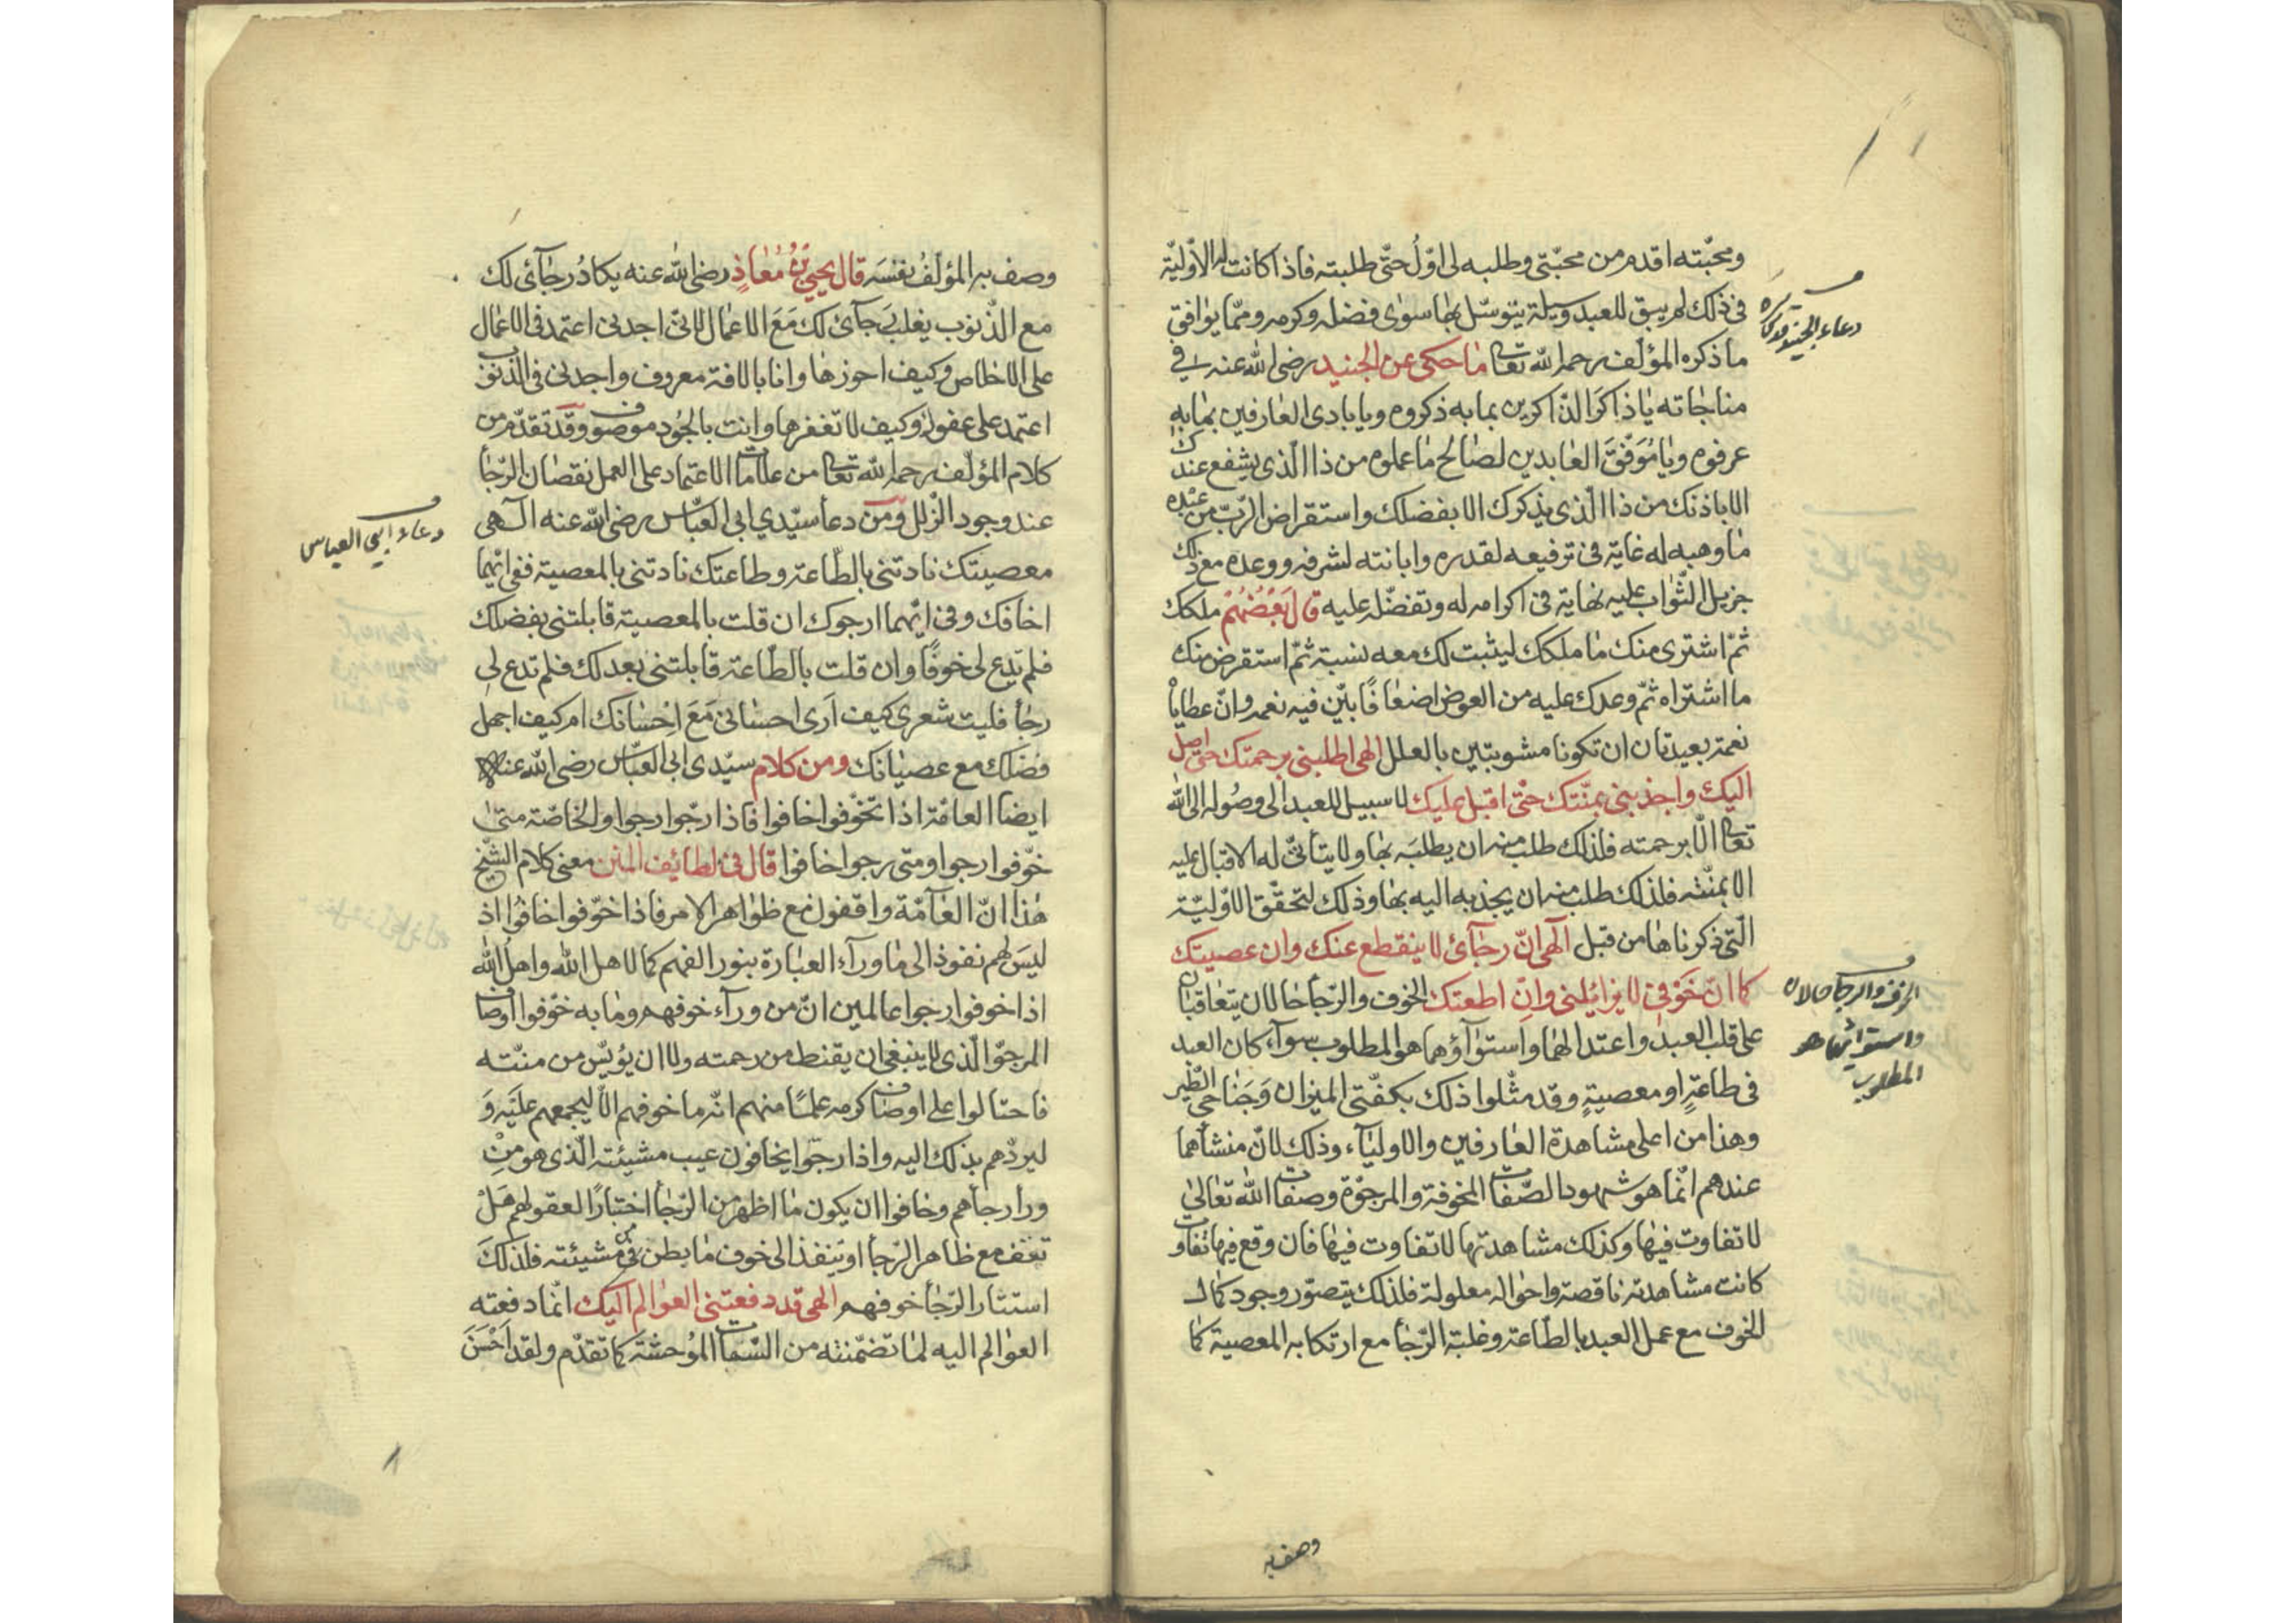 ومحبّته اقدم من محبّتى وطلبه لى اوّلُ حتّى طلبته فاذا كانت له الاوّليّة
فى ذلك لم يسبق للعبد وسيلة يتوسّل بها سوى فضله وكرمه وممّا يوافق
ما ذكره المؤلّف رحمه الله تعا ما حكى عن الجنيد رضى الله عنه فى
مناجاته يا ذاكر الذّاكرين بما به ذكروه ويا بادى العارفين بما به
عرفوه ويا مُوَفّقَ العابدين لصالح ما عملوه من ذا الّذى يشفع عندك
الا باذنك من ذا الّذى يذكرك الا بفضلك واستقراض الرّبّ من عبده
ما وهبه له غاية فى ترفيعه لقدره وابانته لشرفه ووعده مع ذلك
جزيل الثّواب عليه نهاية فى اكرامه له وتفضّله عليه قال بَعْضُهُمْ ملكك
ثمّ اشترى منك ما ملكك ليثبت لك معه نسبة ثمّ استقرض منك
ما اشتراه ثمّ وعدك عليه من العوض اضعافًا بيّن فيه نعمه وانّ عطاياْ
نعمته بعيدتان ان تكونا مشوبتين بالعلل الهى اطلبنى برحمتك حتى اصل
اليك واجذبنى بمنّتك حتّى اقبل عليك لا سبيل للعبد الى وصوله الى الله
تعا الّا برحمته فلذلك طلب منه ان يطلبَه بها ولا يتأتّى له الاقبال عليه
الا بمنّته فلذلك طلب منه ان يجذبه اليه بها وذلك لتحقّق الاوّليّة
الّتى ذكرناها من قبل الهى انّ رجآئ لا ينقطع عنك وان عصيتك
كما انّ خَوْفى لا يزايلنى وان اطعتك الخوف والرّجأ حالان يتعاقبان
على قلب العبد واعتدالهما واستوآؤهما هو المطلوب سوآء كان العبد
فى طاعةٍ او معصيةٍ وقد مثّلوا ذلك بكفّتى الميزان وَجَناحى الطّير
وهذا من اعلى مشاهدة العارفين والاوليآء وذلك لانّ منشأهما
عندهم انّما هو شهود الصّفات المخوفة والمرجوّة وصفات الله تعالى
لا تفاوت فيها وكذلك مشاهدتها لا تفاوت فيها فان وقع فيها تفاوت
كانت مشاهدته ناقصة واحواله معلولة فلذلك يتصوّر وجود كمال
الخوف مع عمل العبد بالطّاعة وغلبة الرّجأ مع ارتكابه المعصية كما
دعاء الجنيد
الخوف والرجا حالان
واستوائهما هو
المطلوب
وصف به
وصف به المؤلّفُ نفسَه قال يحيى بْنُ مُعَاذٍ رضى الله عنه يكادُ رجآئى لك
مع الذّنوب يغلب رجآئ لك مَعَ الاعمال لانّى اجدنى اعتمد فى الاعمال
على الاخلاص وكيف احوزها وانا بالافة معروف واجدنى فى الذّنوب
اعتمد على عفوك وكيف لا تغفرها وانت بالجُود موصوف وقد تقدّم من
كلام المؤلّف رحمه الله تعا من علامات الاعتماد على العمل نقصان الرّجأ
عند وجود الزّلل ومن دعأ سيّدي ابى العبّاس رضى الله عنه الٓهى
معصيتك نادتنى بالطّاعة وطاعتك نادتنى بالمعصية ففى ايّهما
اخافك وفى ايّهما ارجوك ان قلت بالمعصية قابلتنى بفضلك
فلم تدع لى خوفًا وان قلت بالطّاعة قابلتنى بعدلك فلم تدع لى
رجأ فليت شعرى كيف اَرى احسانى مَعَ اِحْسانك ام كيف اجهل
فضلك مع عصيانك ومن كلام سيّدى ابى العبّاس رضى الله عنه
ايضا العامّة اذا تخوّفوا خافوا فاذا رجّوا رجوا والخاصّة متى
خوّفوا رجوا ومتى رجوا خافوا قال فى لطائف المنن معنى كلام الشّيخ
هٰذا انّ العآمّة واقفون مع ظواهر الامر فاذا خوّفوا خافُوا اذ
ليسَ لهم نفوذ الى ما ورآء العبارة بنور الفهم كما لاهل الله واهل الله
اذا خوفوا رجوا عالمين انّ من ورآء خوفهم وما به خوّفوا اوصاف
المرجوّ الّذى لا ينبغى ان يقنط من رحمته ولا ان يؤيّس من منّته
فاحتالوا على اوصاف كرمه علمًا منهم انّه ما خوفهم الّا ليجمعهم علَيْه وَ
ليردّهم بذلك اليه واذا رجّوا يخافون عيب مشيئته الّذى هو مِنْ
ورأ رجأهم وخافوا ان يكون ما اظهر من الرّجأ اختبارًا لعقولهم هَلْ
تقف مع ظاهر الرّجأ او ينفذ الى خوف ما بطن فى مشيئته فلذلكَ
استثار الرّجأ خوفهم الهى قد دفعتنى العوالم اليك انّما دفعته
العوالم اليه لما تضمّنته من السّمات المُوحشة كما تقدّم ولقد اَحْسَنَ
دعاء ابي العباس